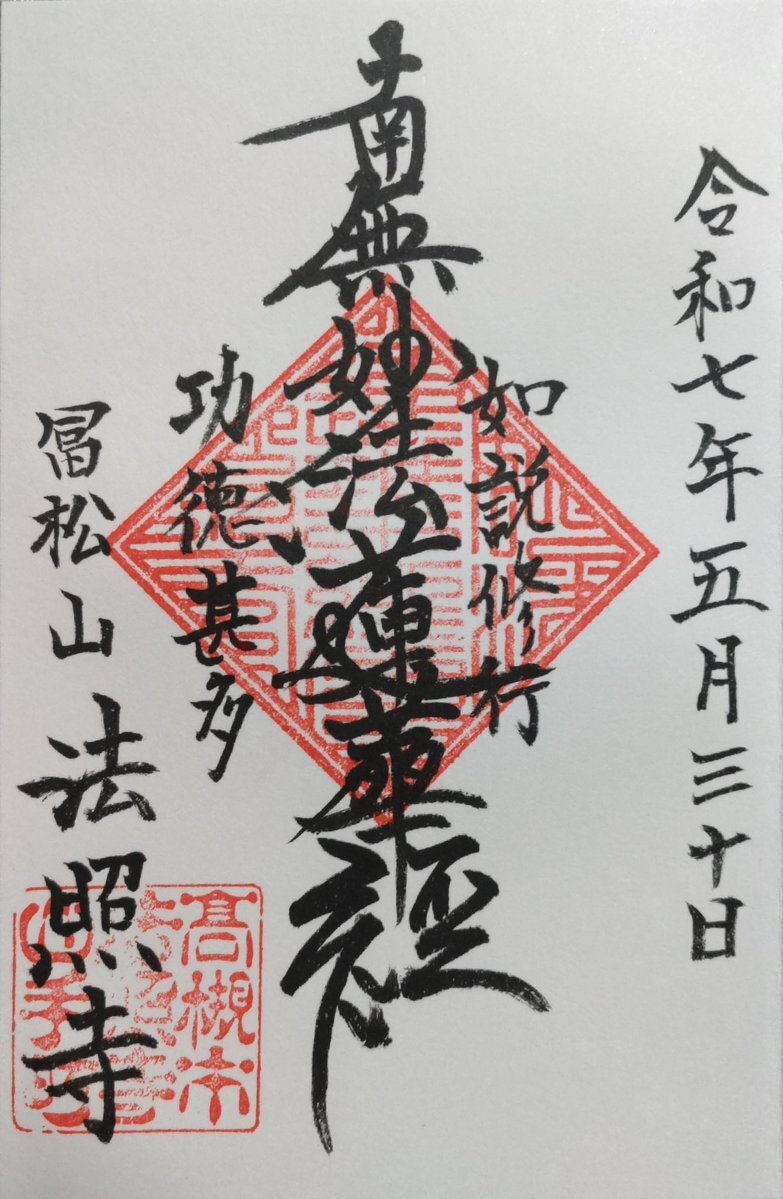 令和七年五月三十日
如説修行
南無妙法蓮華経
功徳甚多
冨松山 法照寺
高槻市